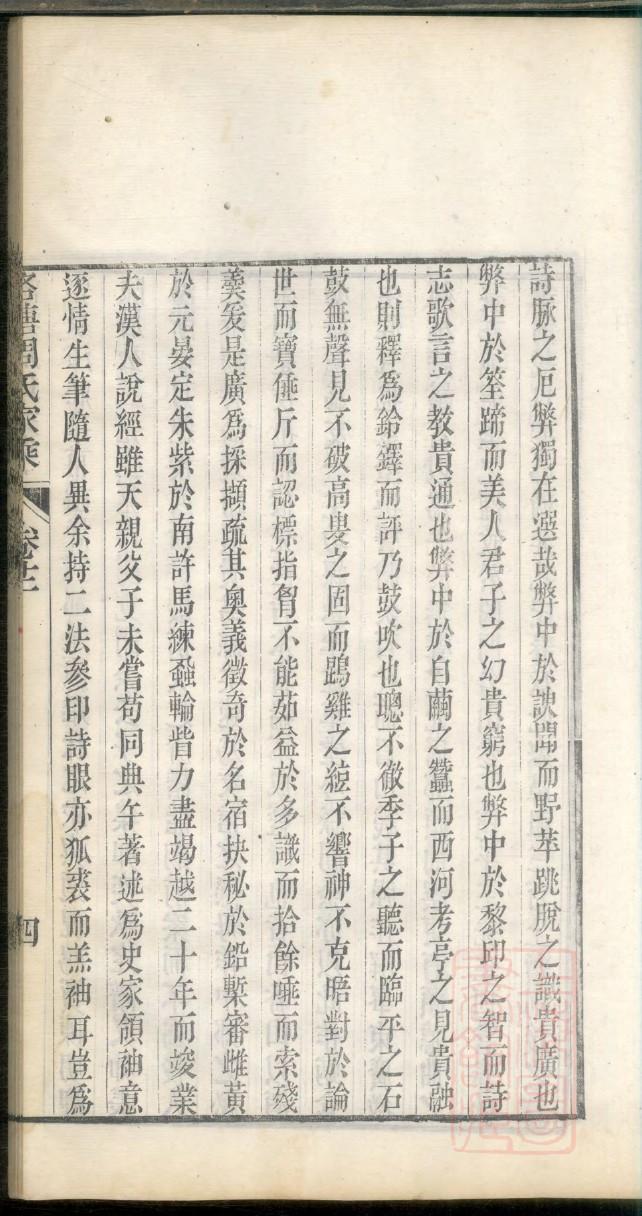 詩脉之厄弊獨在選哉弊中於諛聞而野苹跳脫之識貴廣也
弊中於筌蹄而美人君子之幻貴窮也弊中於黎邱之智而詩
志歌言之教貴通也弊中於自繭之蠶而西河考亭之見貴融
也則釋為鈴鐸而評乃鼓吹也聰不徹季子之聽而臨平之石
鼓無聲見不破高叟之固而鵾雞之絃不響神不克晤對於論
世而寶倕斤而認標指智不能茹益於多識而拾餘唾而索殘
羹爰是廣為採擷疏其奧義徵奇於名宿抉秘於鉛槧審雌黃
於元晏定朱紫於南許馬練蝨輪眥力盡竭越二十年而竣業
夫漢人說經雖天親父子未嘗苟同典午著述為史家領袖意
逐情生筆隨人異余持二法參印詩眼亦狐裘而羔袖耳豈為
周氏家乘
卷廿二
四